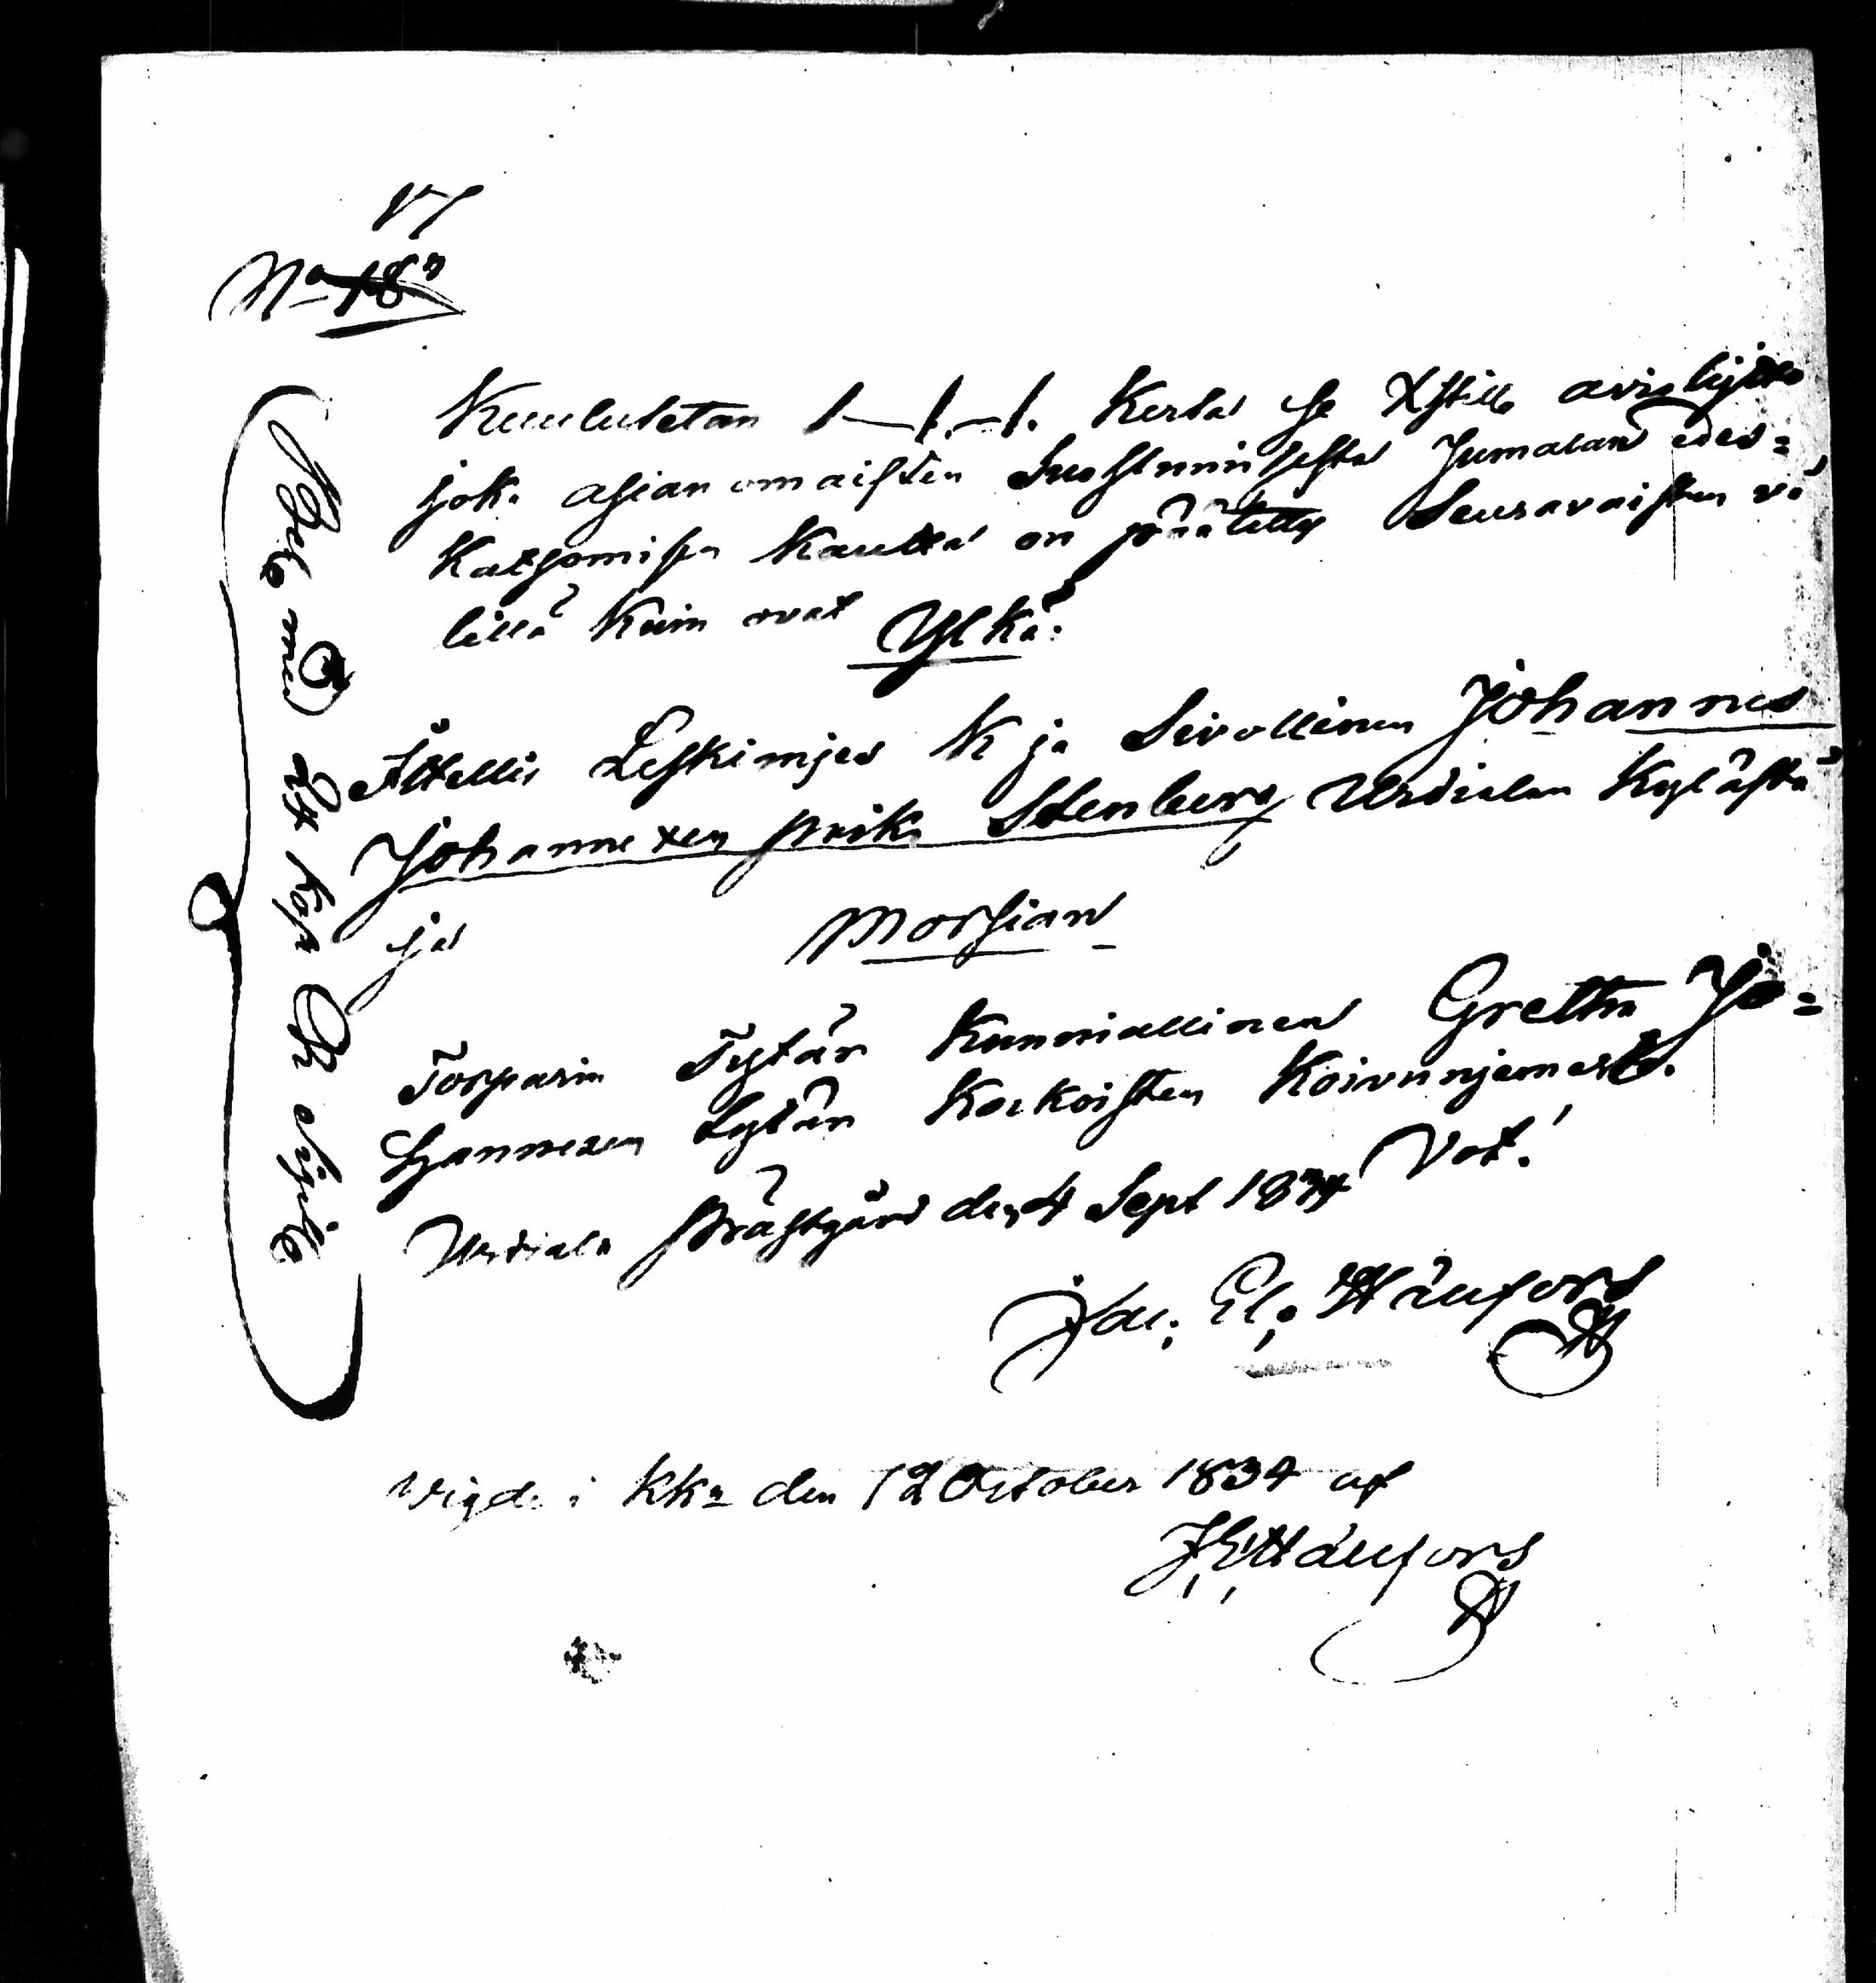 17
No 18
Kuulutetan 1 — 1. — 1. Kerta se Xstill. avioliitto
joka asian omaisten Suostumisesta Jumalan edes=
Katzomisen Kautta on päätetty Seuravaisten vä
lillä Kuin ovat Ylkä:
Ittellis Leskimjes K ja Sivollinen Johannes
Johannexen poika Stenberg Urdialan Kylästä
ja Morsian
Torparin Tytär Kunniallinen Gretha Jo=
hannexen tytär Korkoisten Koivunjemestä.
Urdiala Prästgård den 4 Sept 1834 Vot.
Jac. El. Häufors
Vigde i kka den 12 October 1834 af
J. E. Häufors